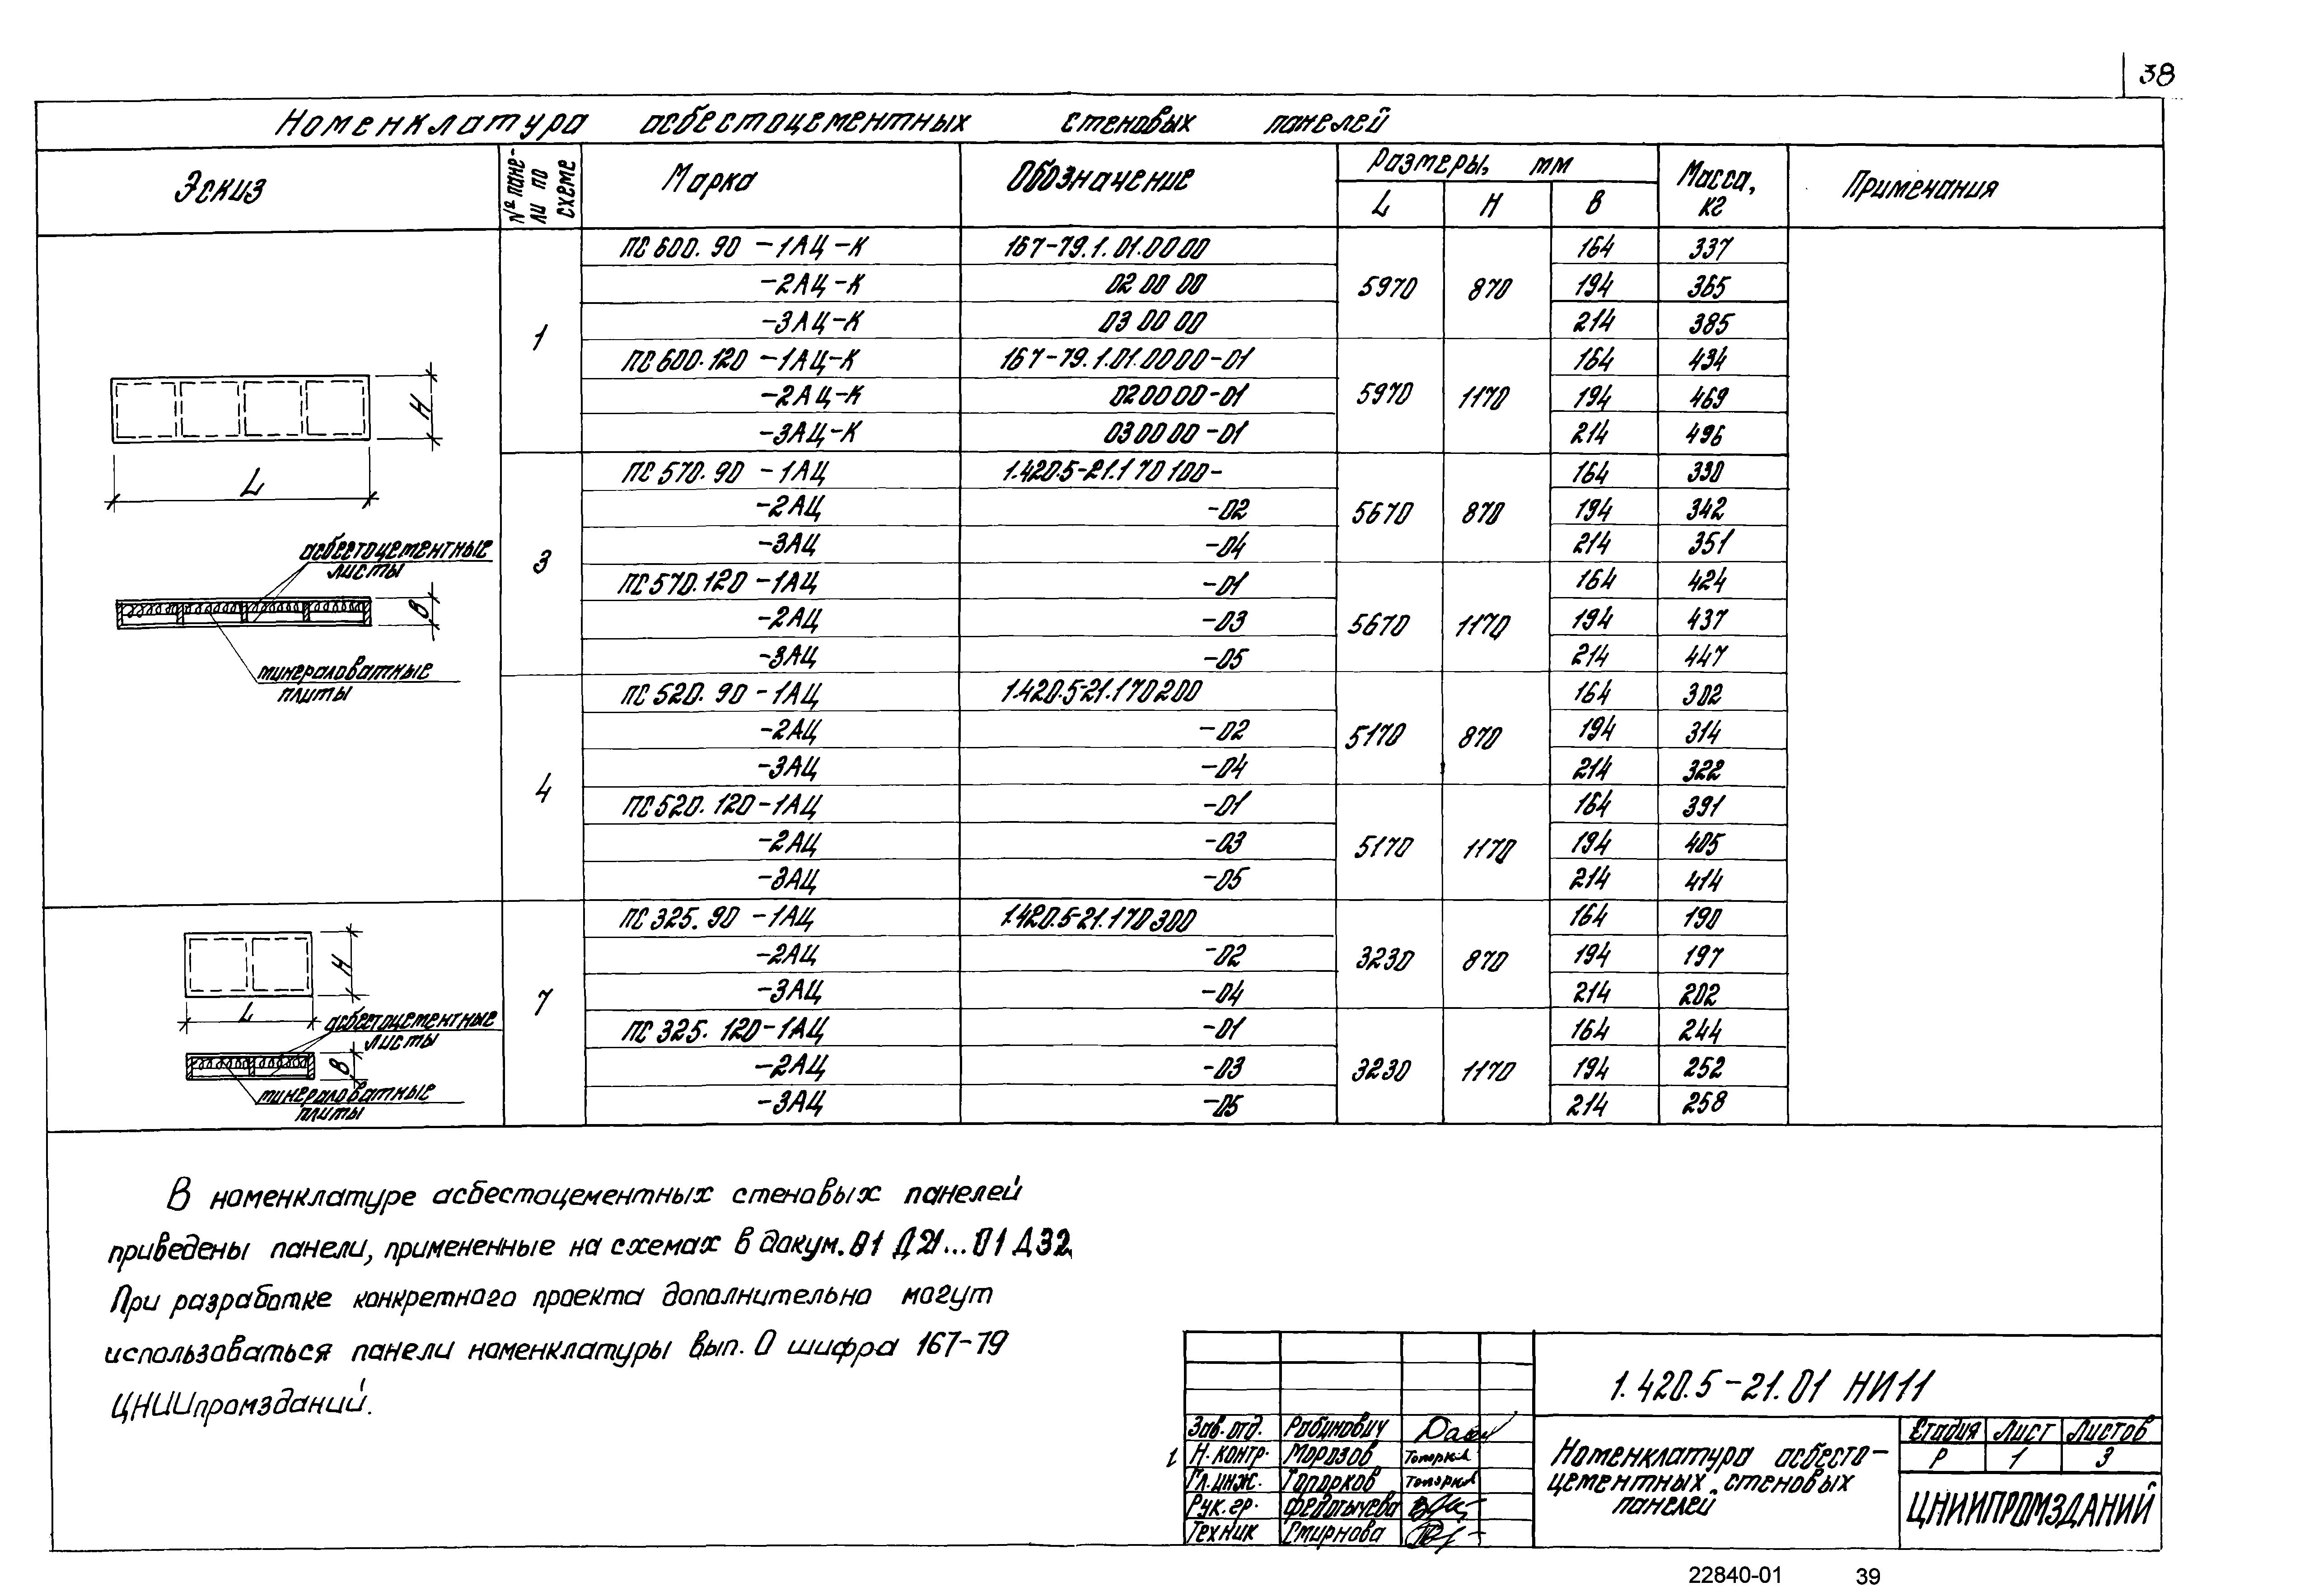 38
Номенклатура асбестоцементных стеновых панелей
Эскиз | № пане-ли по схеме | Марка | Обозначение | Размеры, мм | Масса, кг | Примечания
L | H | В
1
ПС 600. 90 -1АЦ-К | 167-79.1.01.0000 | 5970 | 870 | 164 | 337
-2АЦ-К | 02 00 00 | 194 | 365
-3АЦ-К | 03 00 00 | 214 | 385
ПС 600.120 -1АЦ-К | 167-79.1.01.0000-01 | 5970 | 1170 | 164 | 434
-2АЦ-К | 020000-01 | 194 | 469
-3АЦ-К | 030000-01 | 214 | 496
3
ПС 570. 90 -1АЦ | 1.420.5-21.1 70 100- | 5670 | 870 | 164 | 330
-2АЦ | -02 | 194 | 342
-3АЦ | -04 | 214 | 351
ПС 570.120 -1АЦ | -01 | 5670 | 1170 | 164 | 424
-2АЦ | -03 | 194 | 437
-3АЦ | -05 | 214 | 447
4
ПС 520. 90 -1АЦ | 1.420.5-21.170200 | 5170 | 870 | 164 | 302
-2АЦ | -02 | 194 | 314
-3АЦ | -04 | 214 | 322
ПС 520. 120-1АЦ | -01 | 5170 | 1170 | 164 | 391
-2АЦ | -03 | 194 | 405
-3АЦ | -05 | 214 | 414
7
ПС 325. 90 -1АЦ | 1.420.5-21.170300 | 3230 | 870 | 164 | 190
-2АЦ | -02 | 194 | 197
-3АЦ | -04 | 214 | 202
ПС 325. 120-1АЦ | -01 | 3230 | 1170 | 164 | 244
-2АЦ | -03 | 194 | 252
-3АЦ | -05 | 214 | 258
H
L
асбестоцементные
листы
В
минераловатные
плиты
H
L
асбестоцементные
листы
В
минераловатные
плиты
В номенклатуре асбестоцементных стеновых панелей
приведены панели, примененные на схемах в докум. 01 Д21...01 Д32.
При разработке конкретного проекта дополнительно могут
использоваться панели номенклатуры вып. 0 шифра 167-79
ЦНИИпромзданий.
1.420.5-21.01 НИ11
Зав. отд. | Рабинович
1 Н. контр. | Морозов | Топорков
Гл. инж. | Топорков | Топорков
Рук. гр. | Федотычева
Техник | Смирнова
Номенклатура асбесто-
цементных стеновых
панелей
Стадия | Лист | Листов
Р | 1 | 3
ЦНИИПРОМЗДАНИЙ
22840-01 39